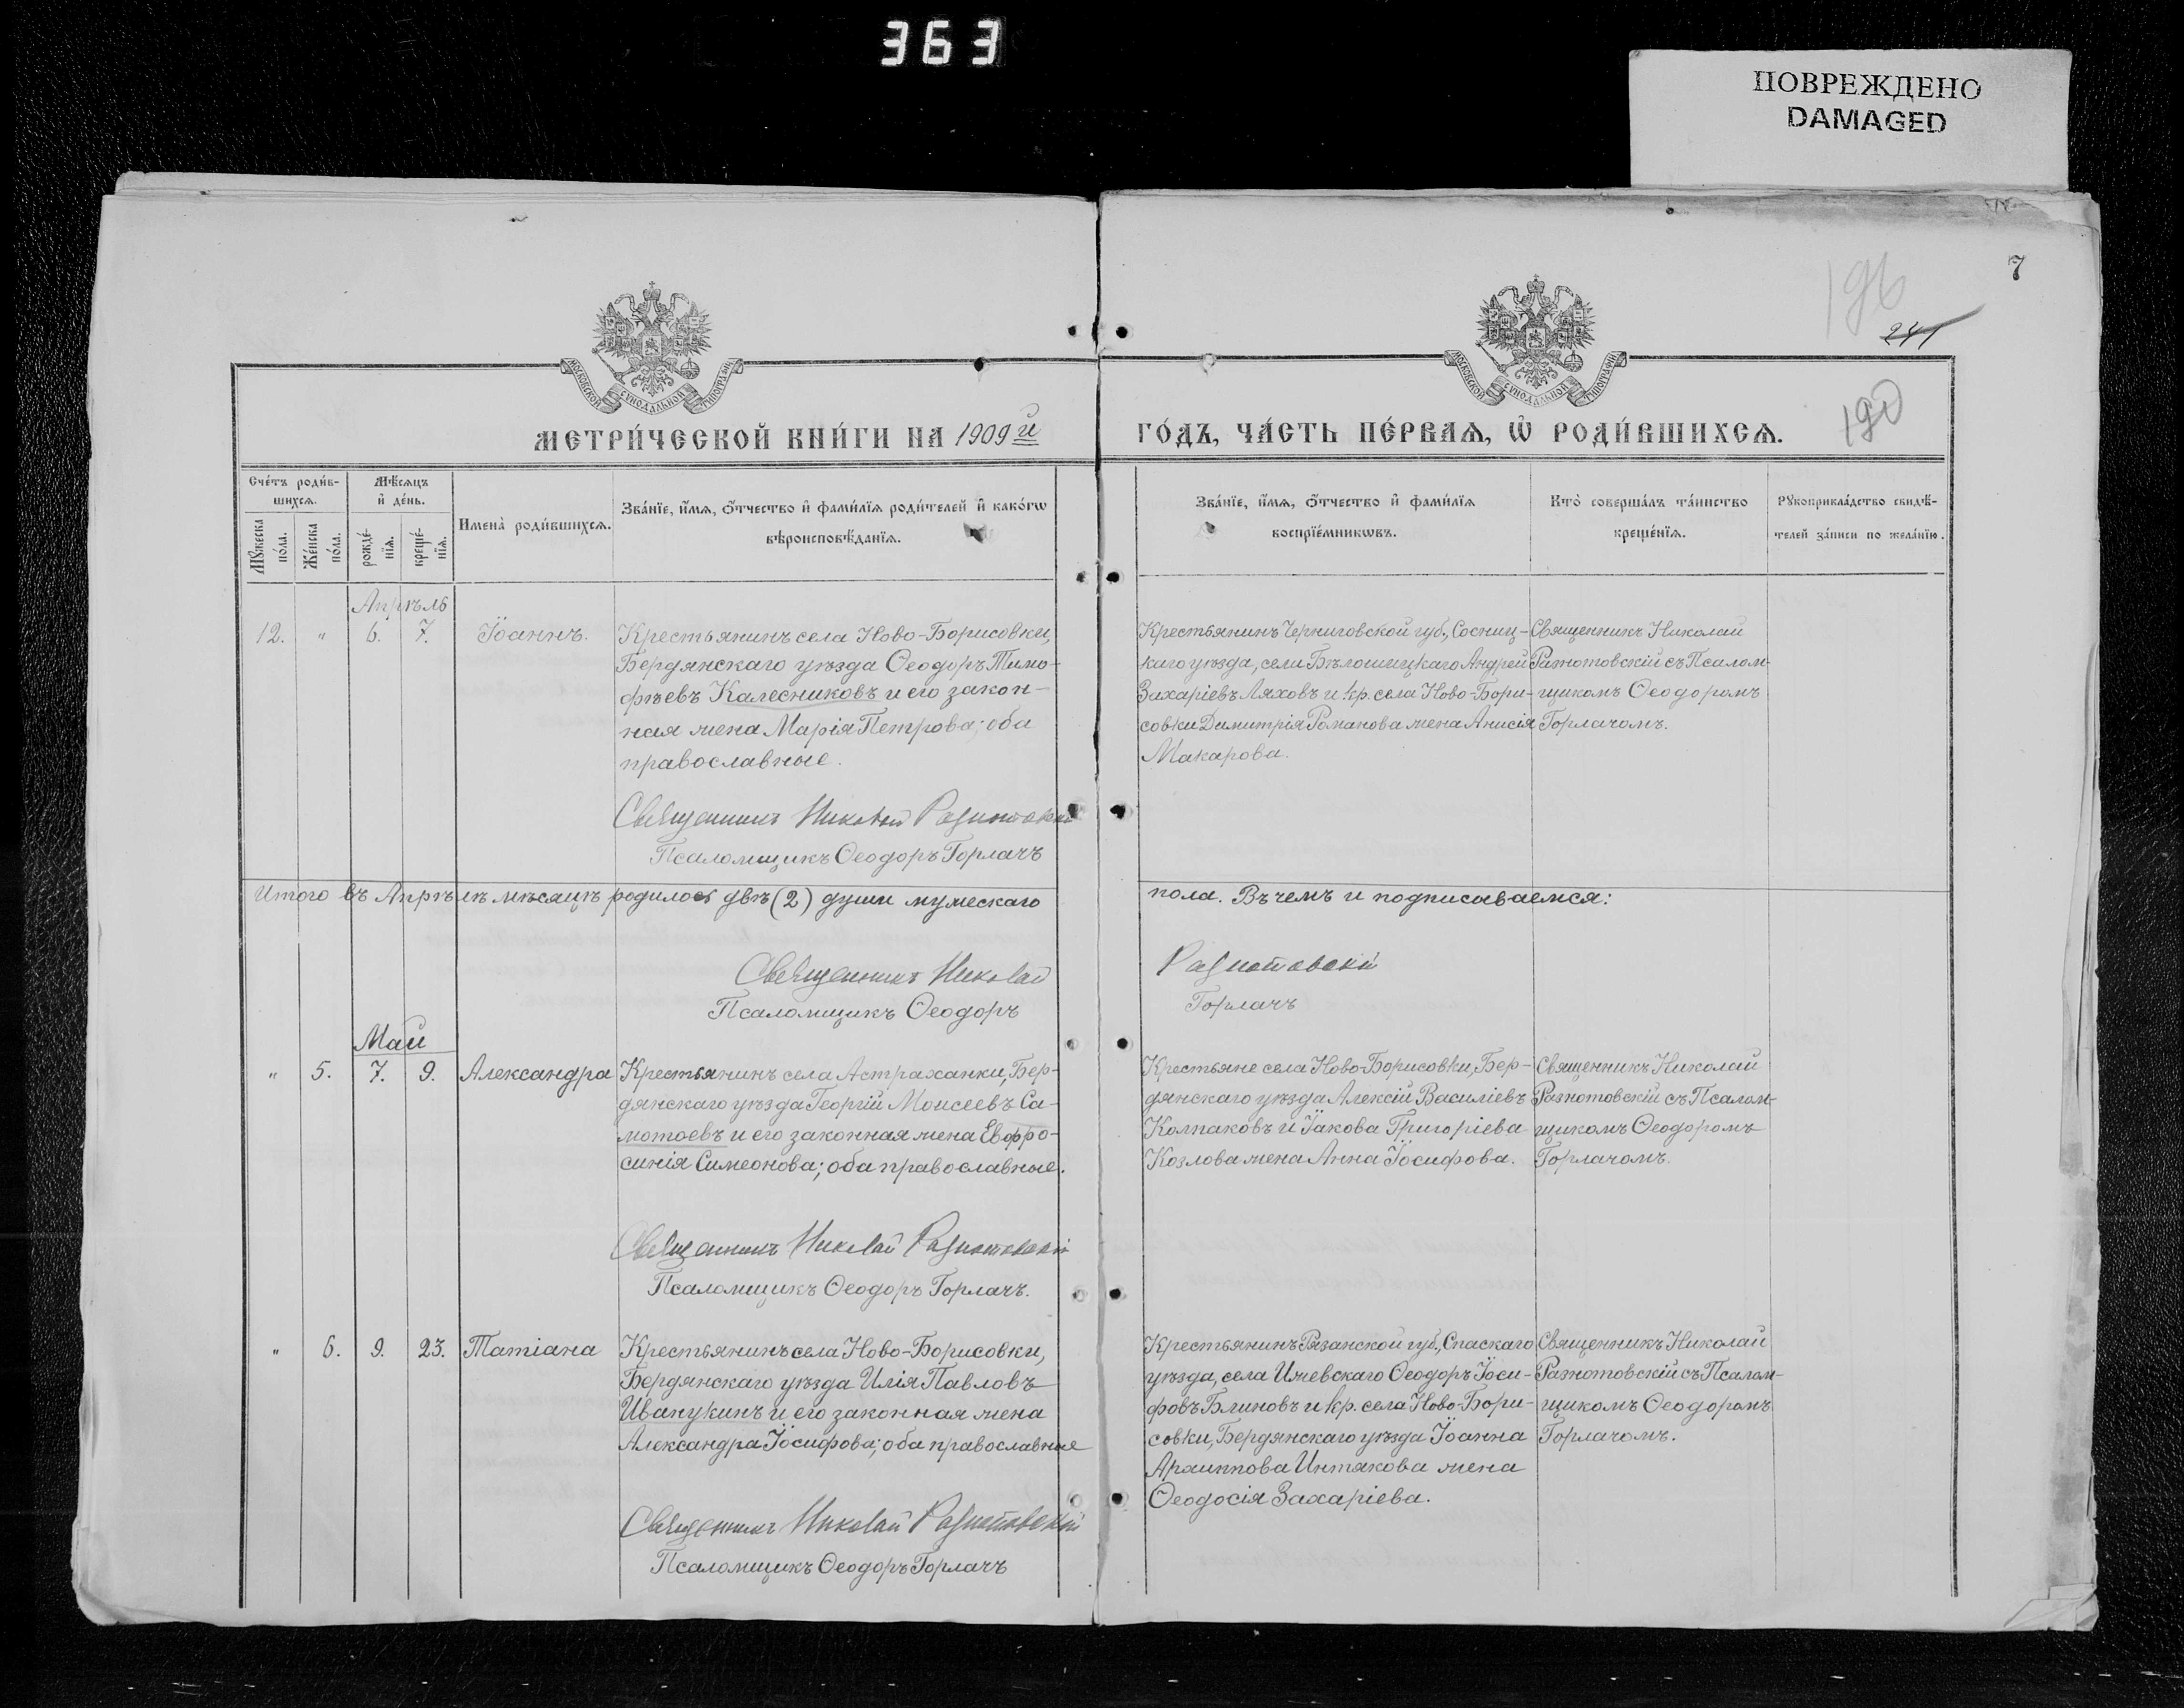 363
ПОВРЕЖДЕНО
DAMAGED
7
196
241
190
МОСКОВСКОЙ СѴНОДАЛЬНОЙ ТИПОГРАФІИ
МОСКОВСКОЙ СѴНОДАЛЬНОЙ ТИПОГРАФІИ
МЕТРИ́ЧЕСКОЙ КНИ́ГИ НА 1909й
ГО́ДЪ, ЧА́СТЬ ПЕ́РВАѦ, Ѡ҆ РОДИ́ВШИХСѦ.
Сче́тъ роди́в-
шихсѧ.
Мѣ́сѧцъ
и҆ де́нь.
Мꙋ́жеска
по́ла.
Же́нска
по́ла.
рожде́-
нїѧ.
креще́-
нїѧ.
Имена̀ роди́вшихсѧ.
Зва́нїе, и҆́мѧ, ѻ҆́тчество и҆ фами́лїѧ роди́телей и҆ како́гѡ
вѣроисповѣ́данїѧ.
Зва́нїе, и҆́мѧ, ѻ҆́тчество и҆ фами́лїѧ
воспрїе́мникѡвъ.
Кто̀ соверша́лъ та́инство
креще́нїѧ.
Рꙋкоприкла́дство свидѣ́-
телей за́писи по жела́нїю.
Апрѣль
12. " 6. 7. Іоаннъ.
Крестьянинъ села Ново-Борисовки,
Бердянскаго уѣзда Ѳеодоръ Тимо-
фѣевъ Калесниковъ и его закон-
ная жена Марія Петрова; оба
православные.
Священникъ Николай Разнотовскій
Псаломщикъ Ѳеодоръ Горлачъ
Крестьянинъ Черниговской губ., Сосниц-
каго уѣзда, села Бѣлошицкаго Андрей
Захаріевъ Ляховъ и кр. села Ново-Бори-
совки Димитрія Романова жена Анисія
Макарова.
Священникъ Николай
Разнотовскій съ Псалом-
щикомъ Ѳеодоромъ
Горлачомъ.
Итого въ Апрѣлѣ мѣсяцѣ родилось двѣ (2) души мужескаго
пола. Въ чемъ и подписываемся:
Священникъ Николай
Разнотовскій
Псаломщикъ Ѳеодоръ
Горлачъ
Май
" 5. 7. 9. Александра
Крестьянинъ села Астраханки, Бер-
дянскаго уѣзда Георгій Моисеевъ Са-
мотоевъ и его законная жена Евфро-
синія Симеонова; оба православные.
Священникъ Николай Разнотовскій
Псаломщикъ Ѳеодоръ Горлачъ.
Крестьяне села Ново-Борисовки, Бер-
дянскаго уѣзда Алексій Василіевъ
Колпаковъ и Іакова Григоріева
Козлова жена Анна Іосифова.
Священникъ Николай
Разнотовскій съ Псалом-
щикомъ Ѳеодоромъ
Горлачомъ.
" 6. 9. 23. Татіана
Крестьянинъ села Ново-Борисовки,
Бердянскаго уѣзда Илія Павловъ
Иванукинъ и его законная жена
Александра Іосифова; оба православные
Священникъ Николай Разнотовскій
Псаломщикъ Ѳеодоръ Горлачъ
Крестьянинъ Рязанской губ., Спаскаго
уѣзда, села Ижевскаго Ѳеодоръ Іоси-
фовъ Блиновъ и кр. села Ново-Бори-
совки, Бердянскаго уѣзда Іоанна
Архиппова Интякова жена
Ѳеодосія Захаріева.
Священникъ Николай
Разнотовскій съ Псалом-
щикомъ Ѳеодоромъ
Горлачомъ.